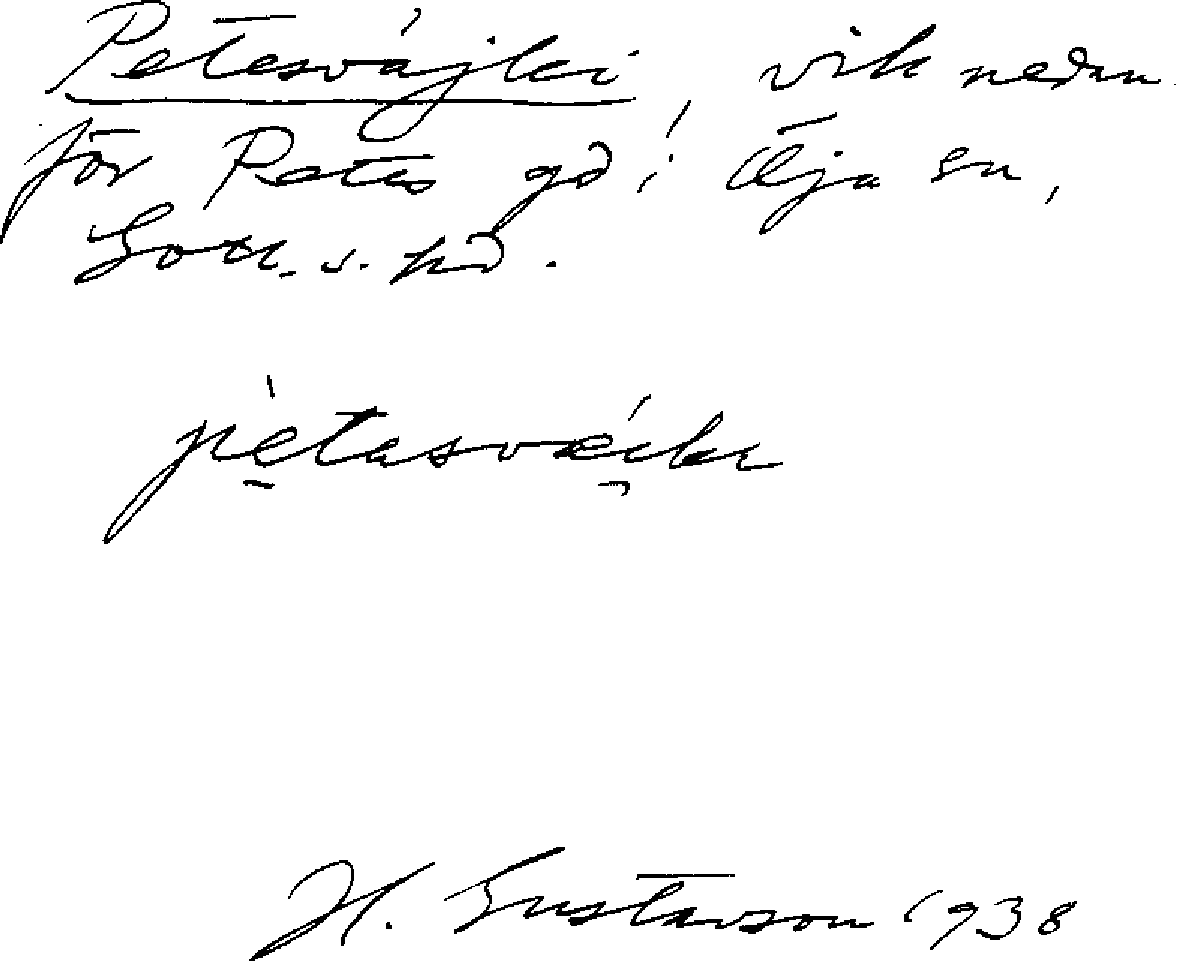 Petesvájki, vik nedan
för Petes gd i Öja sn,
Gotl. s. hd.
pètasváiki
H. Gustavson 1938